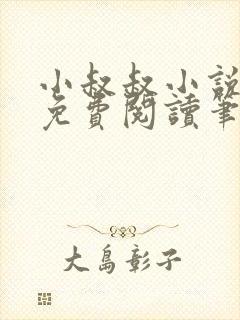 小叔叔小說
免費閱讀筆
大島彰子